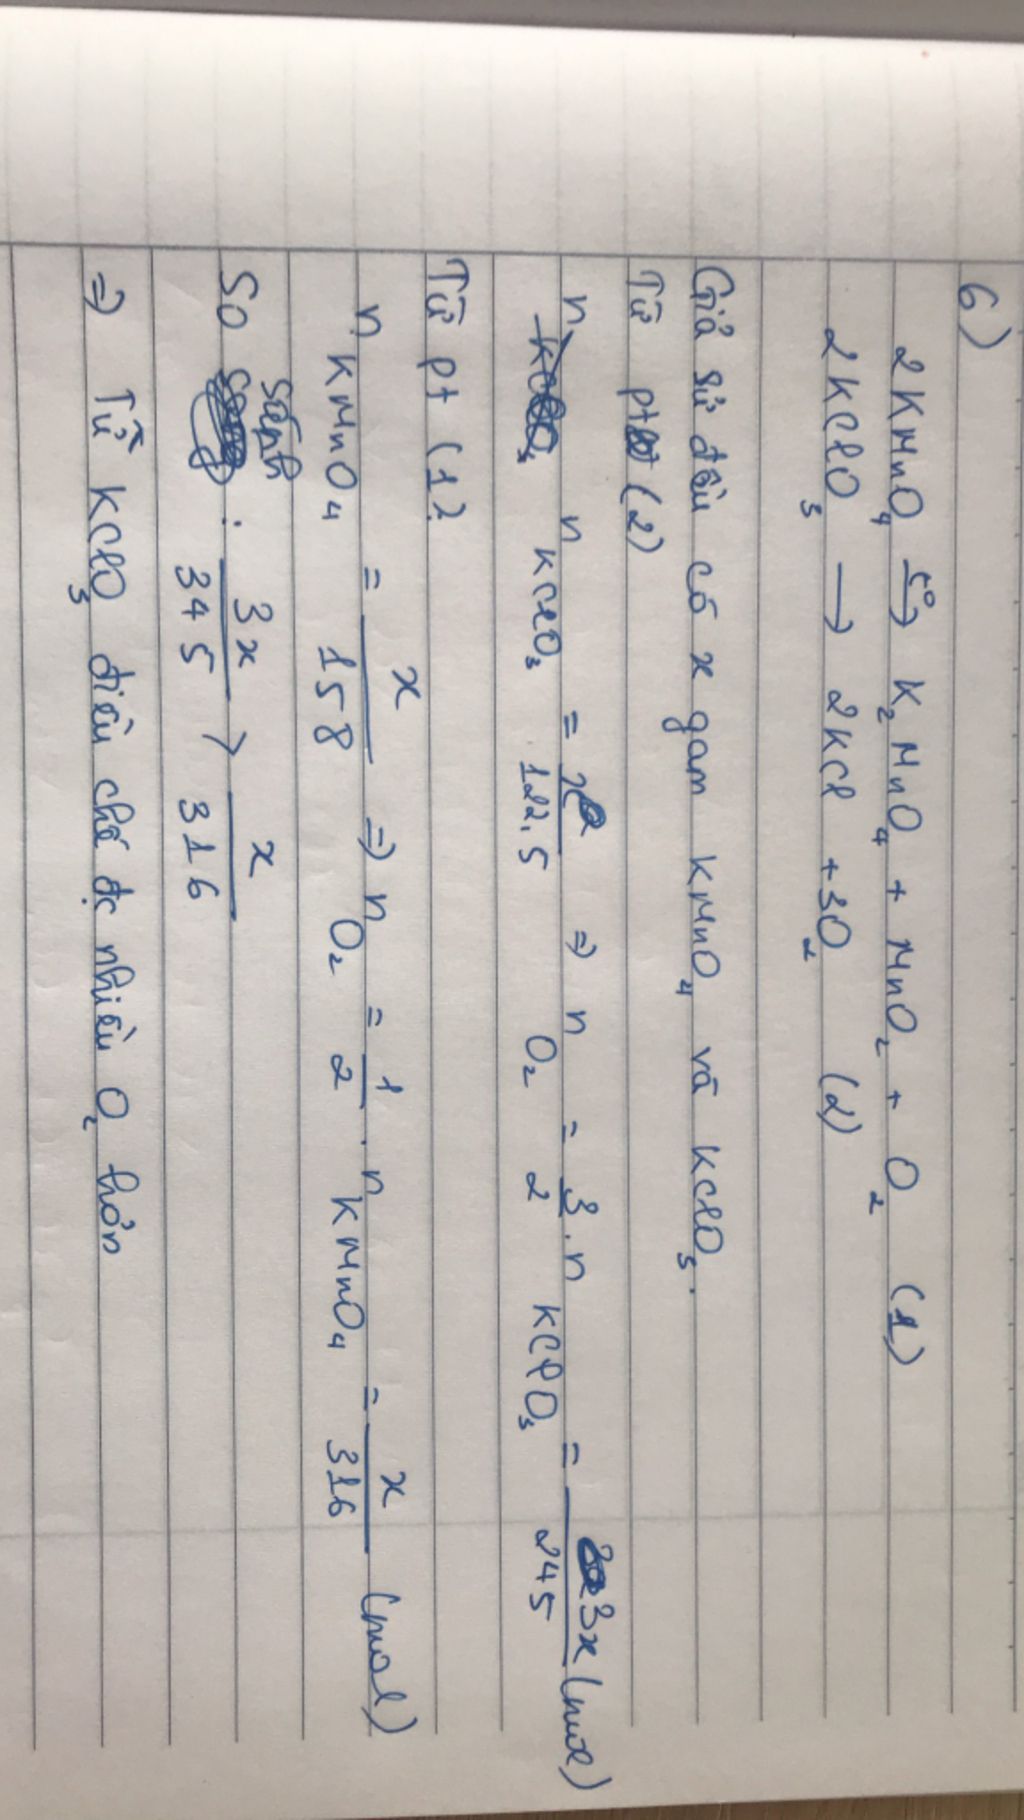 6)
2KMnO₄ t°→ K₂MnO₄ + MnO₂ + O₂ (1)
2KClO₃ → 2KCl + 3O₂ (2)
Giả sử đều có x gam KMnO₄ và KClO₃.
Từ pt (2)
n n KClO₃ = x/122.5 ⇒ n O₂ = 3/2 . n KClO₃ = 3x/245 (mol)
Từ pt (1)
n KMnO₄ = x/158 ⇒ n O₂ = 1/2 . n KMnO₄ = x/316 (mol)
So sánh : 3x/345 > x/316
⇒ Từ KClO₃ điều chế đc nhiều O₂ hơn